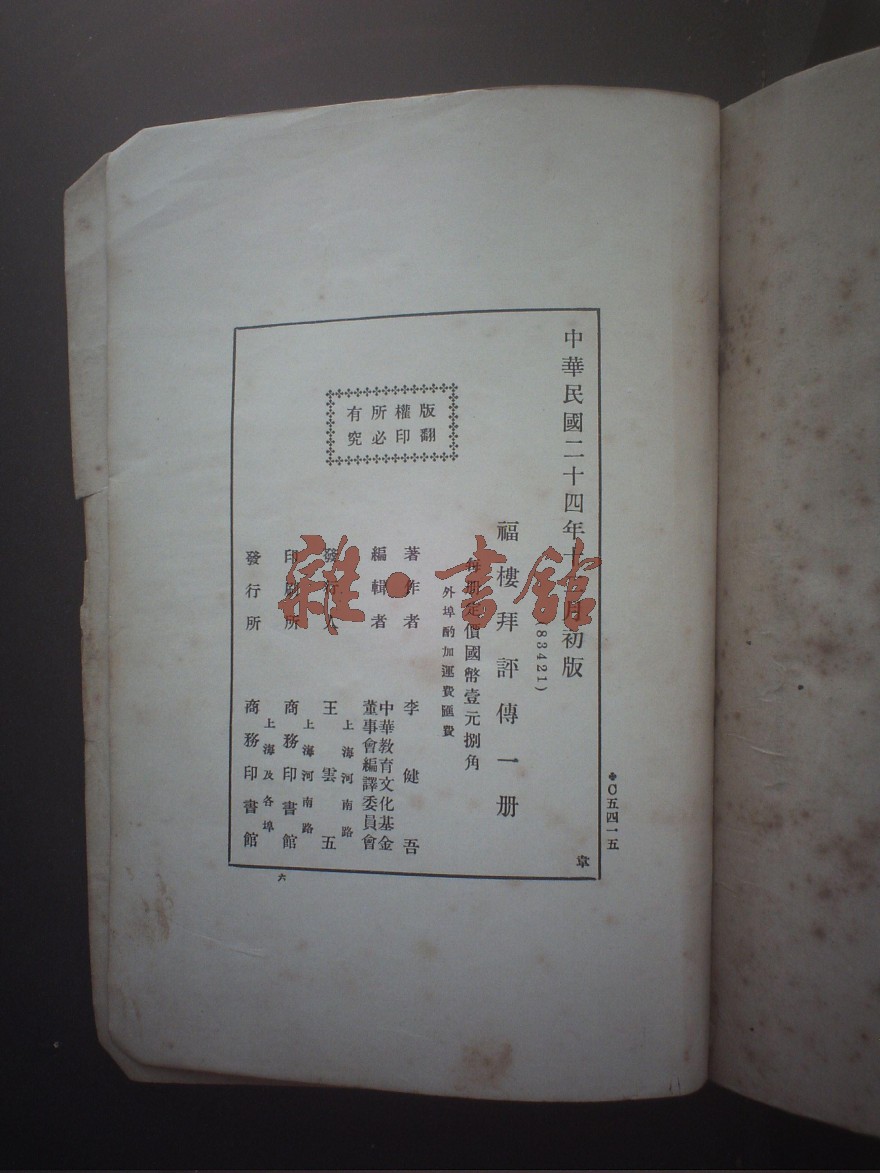 C五四一五
中華民國二十四年十二月初版
(83421)
章
福樓拜評傳一册
每册定價國幣壹元捌角
外埠酌加運費匯費
版權所有
翻印必究
著作者 李健吾
編輯者 中華教育文化基金
董事會編譯委員會
發行人 王雲五
上海河南路
印刷所 商務印書館
上海河南路
發行所 商務印書館
上海及各埠
六
雜·書館